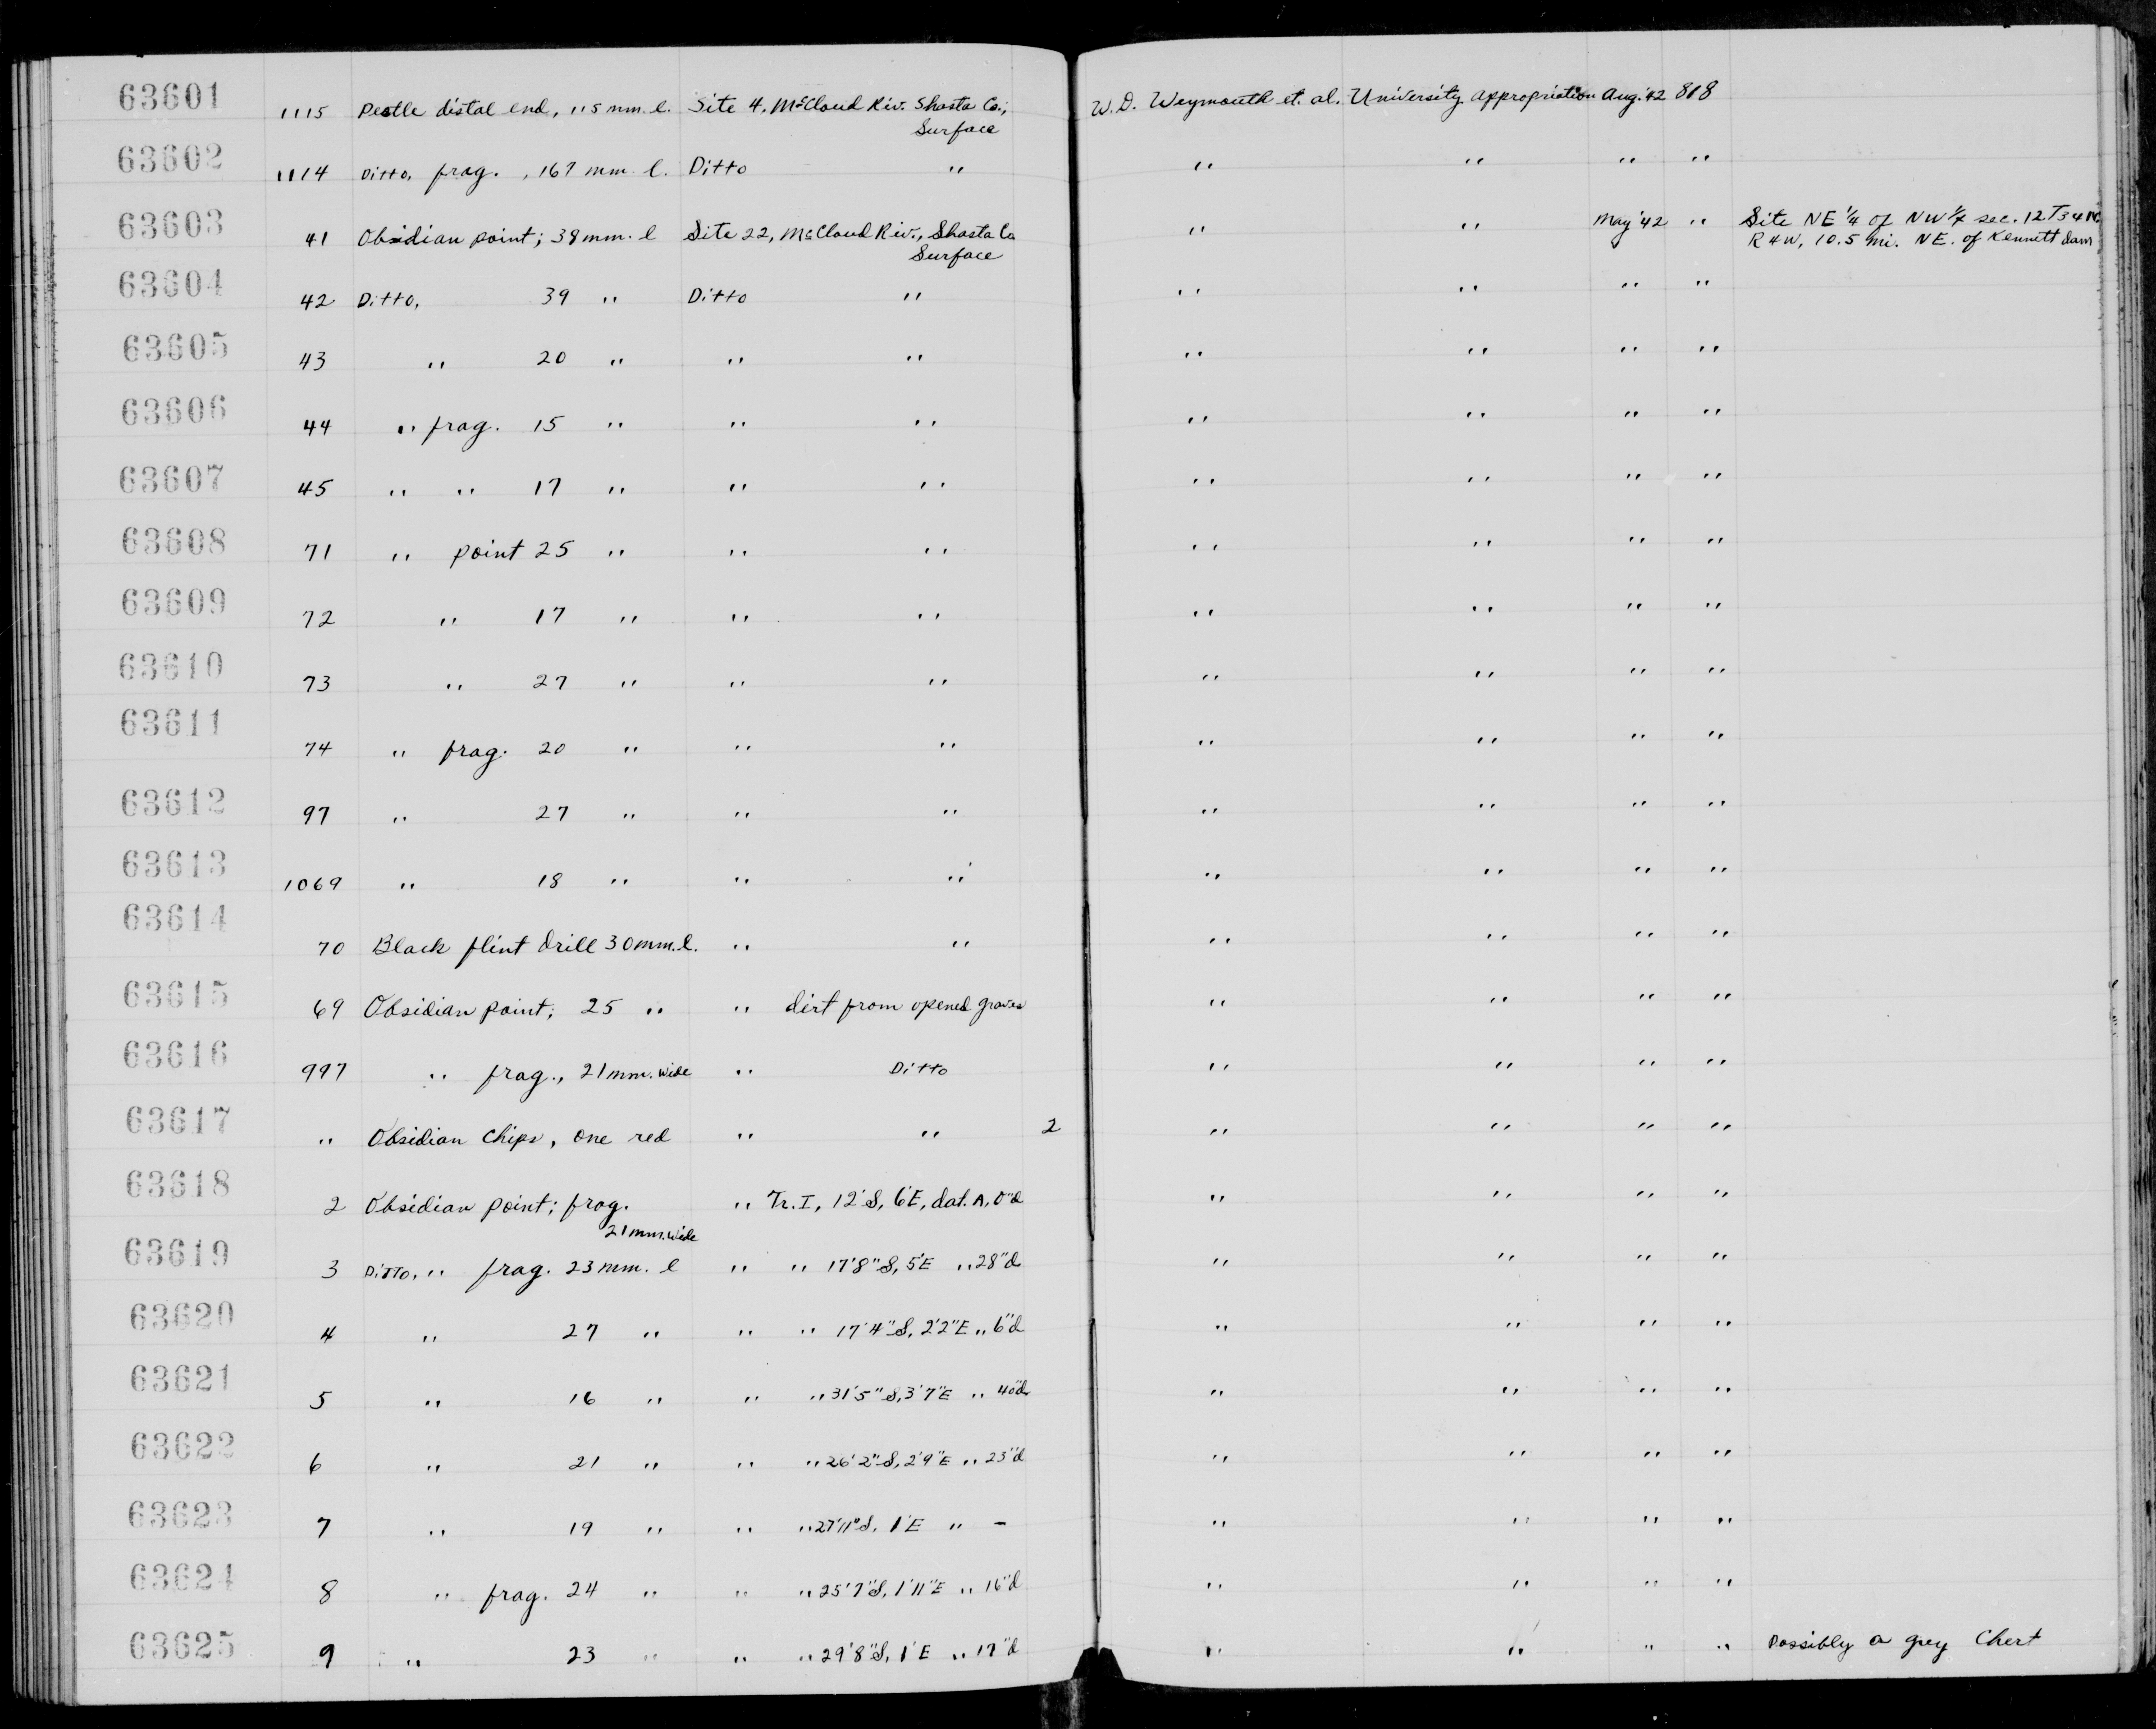 63601 1115 Pestle distal end, 115 mm. l. Site 4, McCloud Riv. Shasta Co., W.D. Weymouth et. al. University appropriation Aug. '42 818
Surface
63602 1114 Ditto, frag. , 167 mm. l. Ditto " " " " "
63603 41 Obsidian point; 38 mm. l Site 22, McCloud Riv., Shasta Co " " May '42 " Site NE 1/4 of NW 1/4 sec. 12 T34N
Surface R4W, 10.5 mi. NE. of Kennett dam
63604 42 Ditto, 39 " Ditto " " " " "
63605 43 " 20 " " " " " " "
63606 44 " frag. 15 " " " " " " "
63607 45 " " 17 " " " " " " "
63608 71 " point 25 " " " " " " "
63609 72 " 17 " " " " " " "
63610 73 " 27 " " " " " " "
63611 74 " frag. 20 " " " " " " "
63612 97 " 27 " " " " " " "
63613 1069 " 18 " " " " " " "
63614 70 Black flint drill 30 mm. l. " " " " " "
63615 69 Obsidian point; 25 " " dirt from opened graves " " " "
63616 997 " frag., 21 mm. wide " Ditto " " " "
63617 " Obsidian chips, one red " " 2 " " " "
63618 2 Obsidian point; frag. " Tr. I, 12'S, 6'E, dat. A, 0"d " " " "
21 mm. wide
63619 3 Ditto, " frag. 23 mm. l " " 17'8"S, 5'E " 28"d " " " "
63620 4 " 27 " " " 17'4"S, 2'2"E " 6"d " " " "
63621 5 " 16 " " " 31'5"S, 3'7"E " 40"d " " " "
63622 6 " 21 " " " 26'2"S, 2'9"E " 23"d " " " "
63623 7 " 19 " " " 27'11"S, 1'E " - " " " "
63624 8 " frag. 24 " " " 25'7"S, 1'11"E " 16"d " " " "
63625 9 " 23 " " " 29'8"S, 1'E " 17"d " " " " Possibly a grey Chert